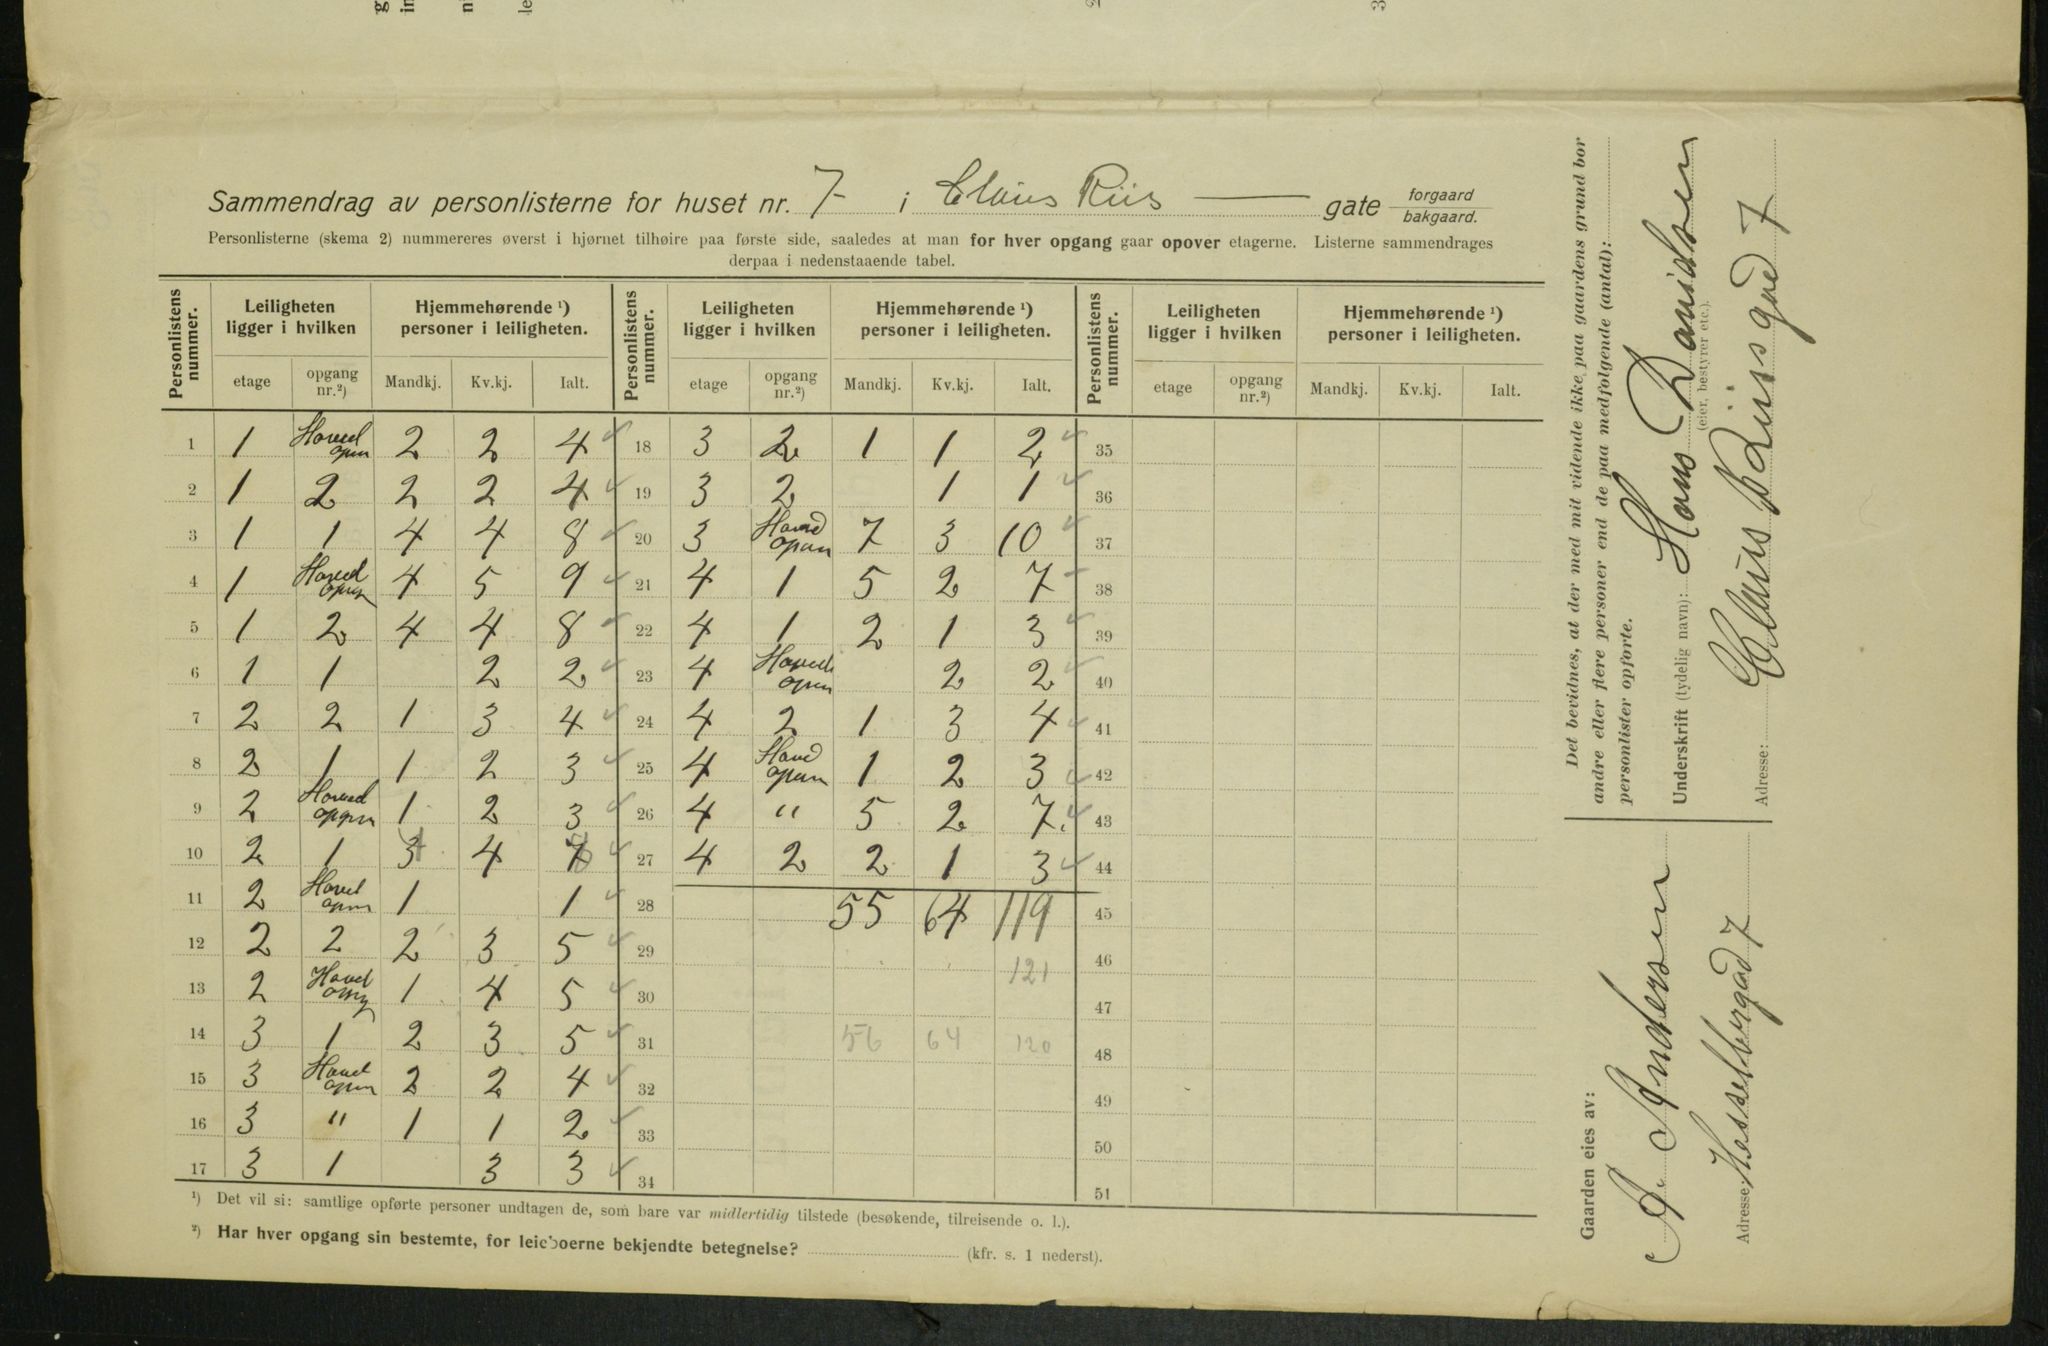 Sammendrag av personlisterne for huset nr. 7 i Claus Riis gate forgaard bakgaard.
Personlisterne (skema 2) nummereres øverst i hjørnet tilhøire paa første side, saaledes at man for hver opgang gaar opover etagerne. Listerne sammendrages
derpaa i nedenstaaende tabel.
Personlistens nummer. Leiligheten ligger i hvilken Hjemmehørende ¹) personer i leiligheten. Personlistens nummer. Leiligheten ligger i hvilken Hjemmehørende ¹) personer i leiligheten. Personlistens nummer. Leiligheten ligger i hvilken Hjemmehørende ¹) personer i leiligheten.
etage opgang nr.²) Mandkj. Kv.kj. Ialt. etage opgang nr.²) Mandkj. Kv.kj. Ialt. etage opgang nr.²) Mandkj. Kv.kj. Ialt.
1 1 Hoved opan 2 2 4 18 3 2 1 1 2 35
2 1 2 2 2 4 19 3 2 1 1 36
3 1 1 4 4 8 20 3 Hoved opan 7 3 10 37
4 1 Hoved opan 4 5 9 21 4 1 5 2 7 38
5 1 2 4 4 8 22 4 1 2 1 3 39
6 1 1 2 2 23 4 Hoved opan 2 2 40
7 2 2 1 3 4 24 4 2 1 3 4 41
8 2 1 1 2 3 25 4 Hoved opan 1 2 3 42
9 2 Hoved opgan 1 2 3 26 4 " 5 2 7. 43
10 2 1 3 4 4 7 27 4 2 2 1 3 44
11 2 Hoved opan 1 1 28 55 64 119 45
12 2 2 2 3 5 29 46
13 2 Hoved opng 1 4 5 30 121 47
14 3 1 2 3 5 31 56 64 120 48
15 3 Hoved opan 2 2 4 32 49
16 3 " 1 1 2 33 50
17 3 1 3 3 34 51
¹) Det vil si: samtlige opførte personer undtagen de, som bare var midlertidig tilstede (besøkende, tilreisende o. l.).
²) Har hver opgang sin bestemte, for leieboerne bekjendte betegnelse? (kfr. s. 1 nederst).
Det bevidnes, at der med mit vidende ikke paa gaardens grund bor
andre eller flere personer end de paa medfølgende (antal):
personlister opførte.
Underskrift (tydelig navn): Hans Danielsen
(eier, bestyrer etc.).
Adresse: Claus Riisgad 7
Gaarden eies av:
A. Andersen
Adresse: Hesselbergad 7